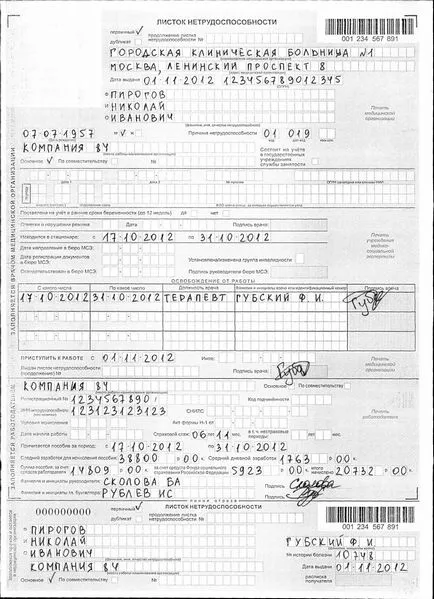 ЛИСТОК НЕТРУДОСПОСОБНОСТИ
первичный V продолжение листка
дубликат нетрудоспособности №
001 234 567 891
ГОРОДСКАЯ КЛИНИЧЕСКАЯ БОЛЬНИЦА №1
МОСКВА, ЛЕНИНСКИЙ ПРОСПЕКТ 8
Дата выдачи 01-11-2012 123456789012345
Ф ПИРОГОВ
И НИКОЛАЙ
О ИВАНОВИЧ
Печать медицинской организации
07-07-1957 м V ж Причина нетрудоспособности 01 019
КОМПАНИЯ ВЧ
Состоит на учёте в государственных учреждениях службы занятости
Основное V По совместительству №
дата 1 дата 2
Поставлена на учёт в ранние сроки беременности (до 12 недель) да нет
Отметки о нарушении режима Дата Подпись врача:
Находился в стационаре: с 17-10-2012 по 31-10-2012
Печать учреждения медико-социальной экспертизы
Дата направления в бюро МСЭ:
Дата регистрации документов в бюро МСЭ: Установлена/изменена группа инвалидности
Освидетельствован в бюро МСЭ: Подпись руководителя бюро МСЭ:
ЗАПОЛНЯЕТСЯ ВРАЧОМ МЕДИЦИНСКОЙ ОРГАНИЗАЦИИ
ОСВОБОЖДЕНИЕ ОТ РАБОТЫ
С какого числа По какое число Должность врача Фамилия и инициалы врача или идентификационный номер Подпись врача
17-10-2012 31-10-2012 ТЕРАПЕВТ ГУБСКИЙ Ф.И.
ПРИСТУПИТЬ К РАБОТЕ с 01-11-2012 Иное:
Выдан листок нетрудоспособности (продолжение) № Подпись врача:
Печать медицинской организации
ЗАПОЛНЯЕТСЯ РАБОТОДАТЕЛЕМ
КОМПАНИЯ ВЧ Основное V По совместительству
Регистрационный № 1234567890
ИНН нетрудоспособного 123123123123 СНИЛС
Печать работодателя
Условия исчисления Акт формы Н-1 от
Дата начала работы Страховой стаж 06 лет 11 мес. в т.ч. нестраховые периоды: лет мес.
Причитается пособие за период: с 17-10-2012 по 31-10-2012
Средний заработок для исчисления пособия: 38800 р 00 к. Средний дневной заработок 1763 р 00 к.
Сумма пособия: за счет средств работодателя 14809 р 00 к. за счет средств Фонда социального страхования Российской Федерации 5923 р 00 к. ИТОГО начислено 20732 р 00 к.
Фамилия и инициалы руководителя СКОЛОВА ВА Подпись Сколова
Фамилия и инициалы гл. бухгалтера РУБЛЕВ ИС Подпись
линия отреза
000000000 ЛИСТОК НЕТРУДОСПОСОБНОСТИ
первичный V продолжение листка
дубликат нетрудоспособности №
001 234 567 891
Ф ПИРОГОВ
И НИКОЛАЙ
О ИВАНОВИЧ
КОМПАНИЯ ВЧ
Основное V По совместительству №
ГУБСКИЙ Ф.И.
№ истории болезни 10748
Дата выдачи 01-11-2012
расписка получателя